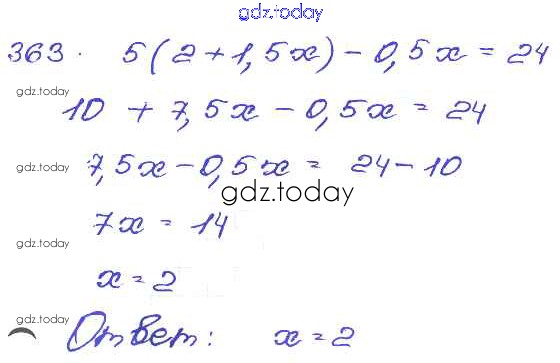 gdz.today
363. 5(2+1,5x)-0,5x=24
gdz.today
10+7,5x-0,5x=24
gdz.today
7,5x-0,5x=24-10
gdz.today
7x=14
gdz.today
x=2
gdz.today
Ответ: x=2
gdz.today